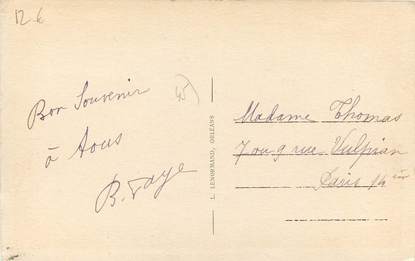 12 €
Bon Souvenir
à tous
B. Faye
45
L. LENORMAND, ORLÉANS
Madame Thomas
7 ou 9 rue Vulpian
Paris 14